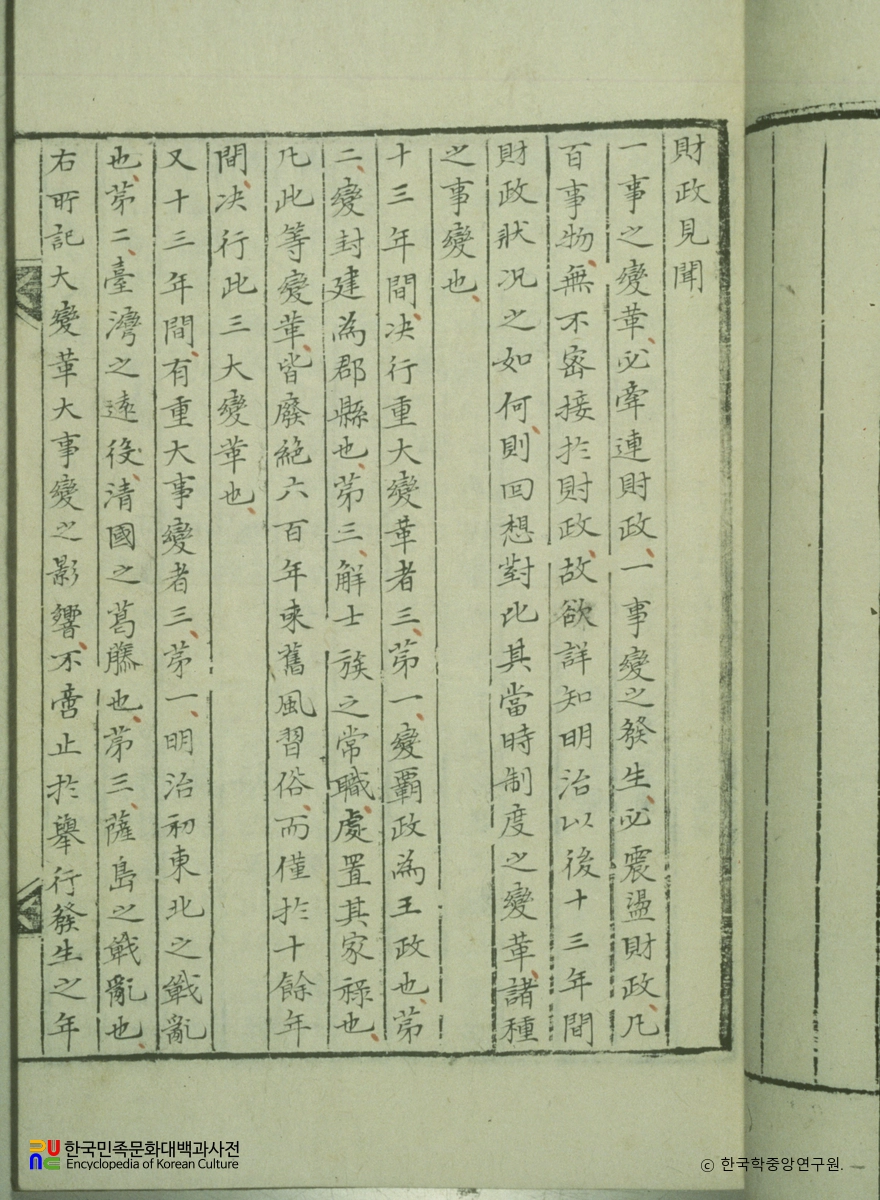 財政見聞
一事之變革、必牽連財政、一事變之發生、必震盪財政、凡
百事物、無不密接於財政、故欲詳知明治以後十三年間
財政狀况之如何、則回想對比其當時制度之變革、諸種
之事變也、
十三年間、决行重大變革者三、苐一、變覇政為王政也、苐
二、變封建為郡縣也、苐三、解士族之常職、處置其家祿也、
凡此等變革、皆廢絶六百年來舊風習俗、而僅於十餘年
間、决行此三大變革也、
又十三年間、有重大事變者三、苐一、明治初東北之戰亂
也、苐二、臺灣之遠役、清國之葛藤也、苐三、薩島之戰亂也、
右所記大變革大事變之影響、不啻止於擧行發生之年
한국민족문화대백과사전
Encyclopedia of Korean Culture
ⓒ 한국학중앙연구원.